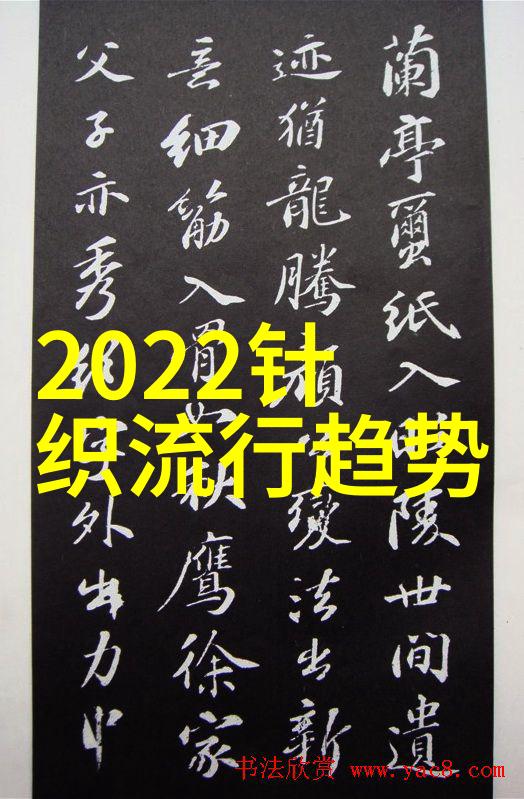 2022针
织流行趋势
蘭亭蠒紙入陵世間遺
迹猶龍騰顏變法出新
意細筋入骨鷹徐家
父子亦秀外出力中
书法欣赏 www.yac8.com